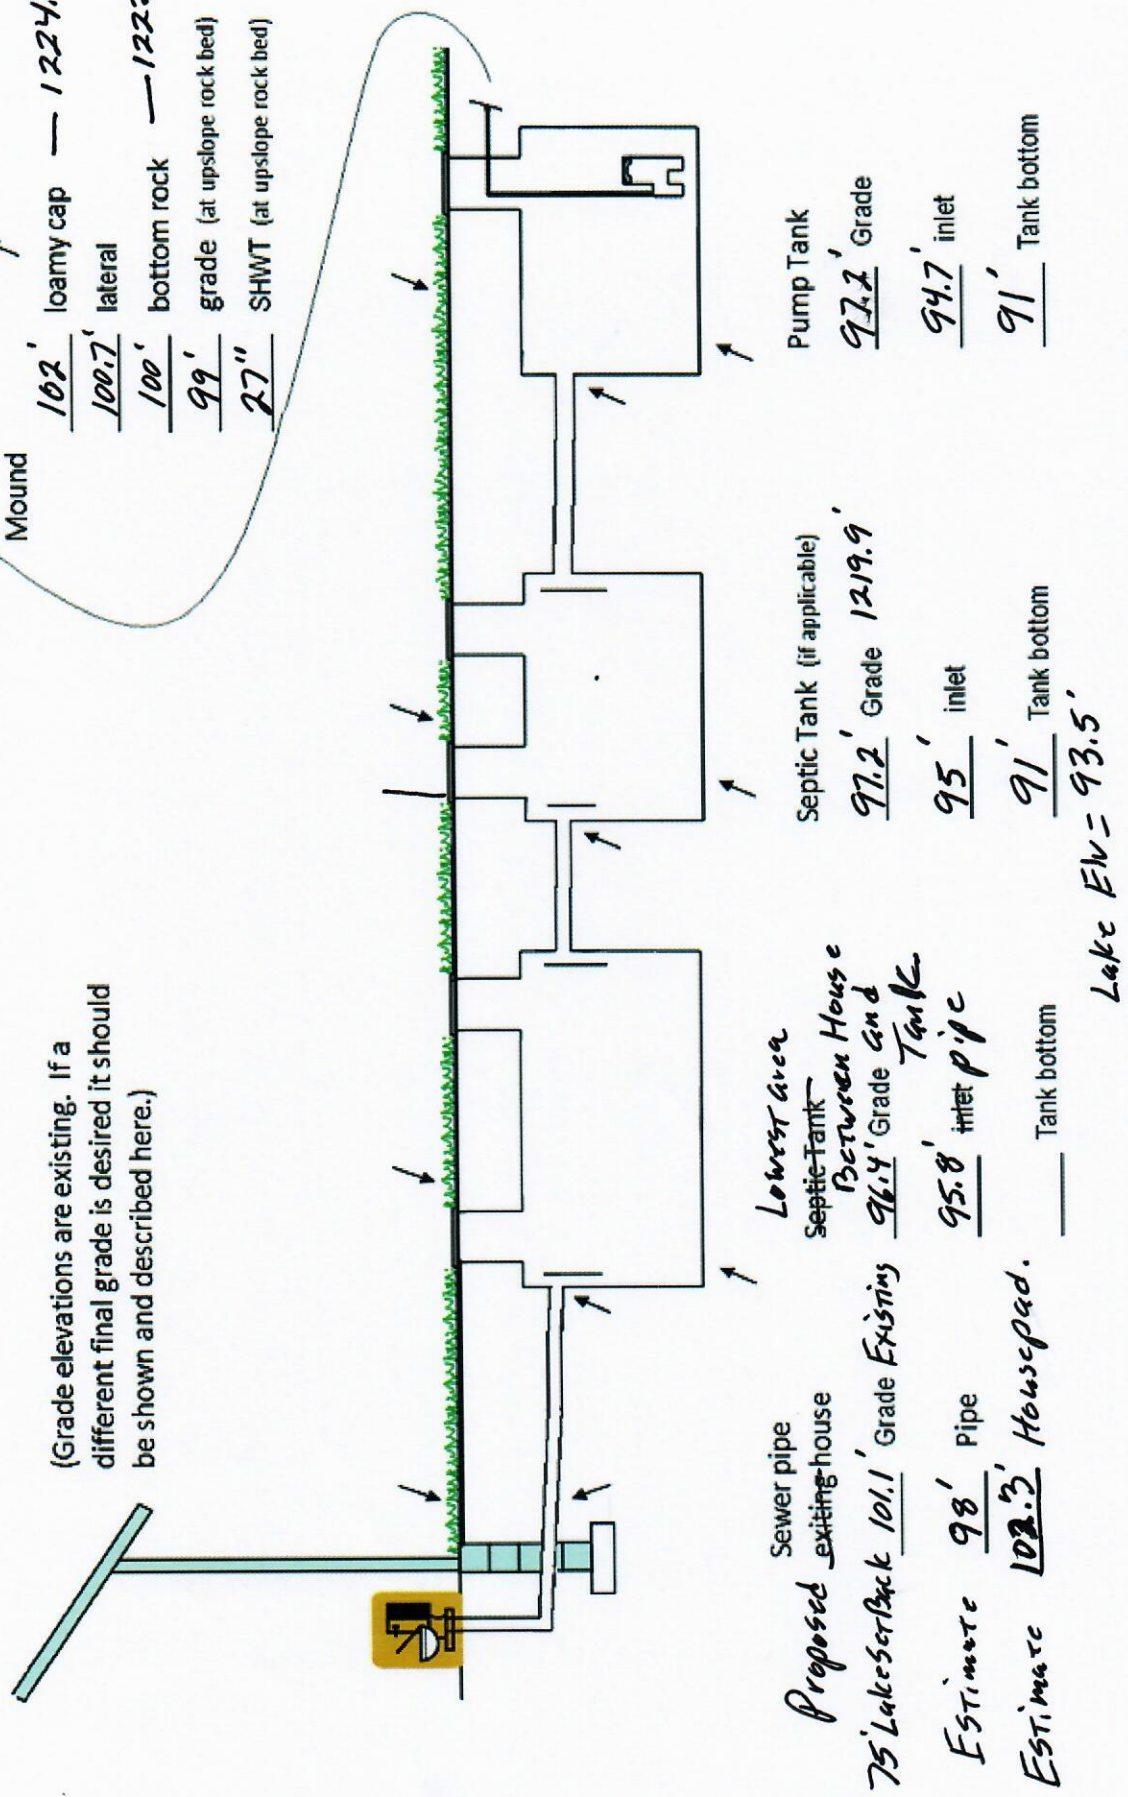 (Grade elevations are existing. If a
different final grade is desired it should
be shown and described here.)
Mound
102' loamy cap — 1224.
100.7' lateral
100' bottom rock — 122
99' grade (at upslope rock bed)
27" SHWT (at upslope rock bed)
Sewer pipe
Proposed exiting house
75' Lake SetBack 101.1' Grade Existing
Estimate 98' Pipe
Estimate 102.3' Housepad.
Lowest area
Septic Tank
Between House
96.4' Grade and
Tank
95.8' inlet pipe
Tank bottom
Septic Tank (if applicable)
97.2' Grade 1219.9'
95' inlet
91' Tank bottom
Lake Elv = 93.5'
Pump Tank
97.2' Grade
94.7' inlet
91' Tank bottom